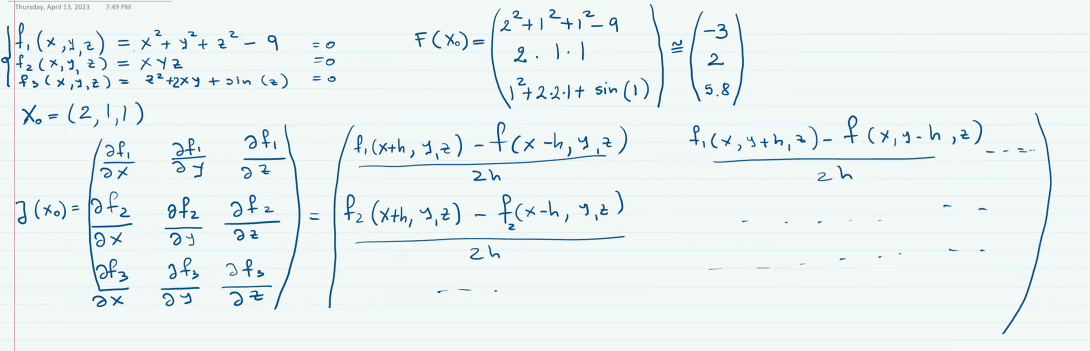 Thursday, April 13, 2023 7:49 PM
f₁(x,y,z) = x² + y² + z² - 9 = 0
f₂(x,y,z) = xyz = 0
f₃(x,y,z) = z² + 2xy + sin(z) = 0
F(x₀) = ( 2² + 1² + 1² - 9
2 · 1 · 1
1² + 2·2·1 + sin(1) ) ≅ ( -3
2
5.8 )
x₀ = (2,1,1)
J(x₀) = ( ∂f₁/∂x ∂f₁/∂y ∂f₁/∂z
∂f₂/∂x ∂f₂/∂y ∂f₂/∂z
∂f₃/∂x ∂f₃/∂y ∂f₃/∂z )
= ( f₁(x+h, y,z) - f(x-h, y,z) / 2h f₁(x, y+h, z) - f(x, y-h, z) / 2h - - - - -
f₂(x+h, y,z) - f₂(x-h, y,z) / 2h - - - - - - -
- - - · - - - - - - - - )